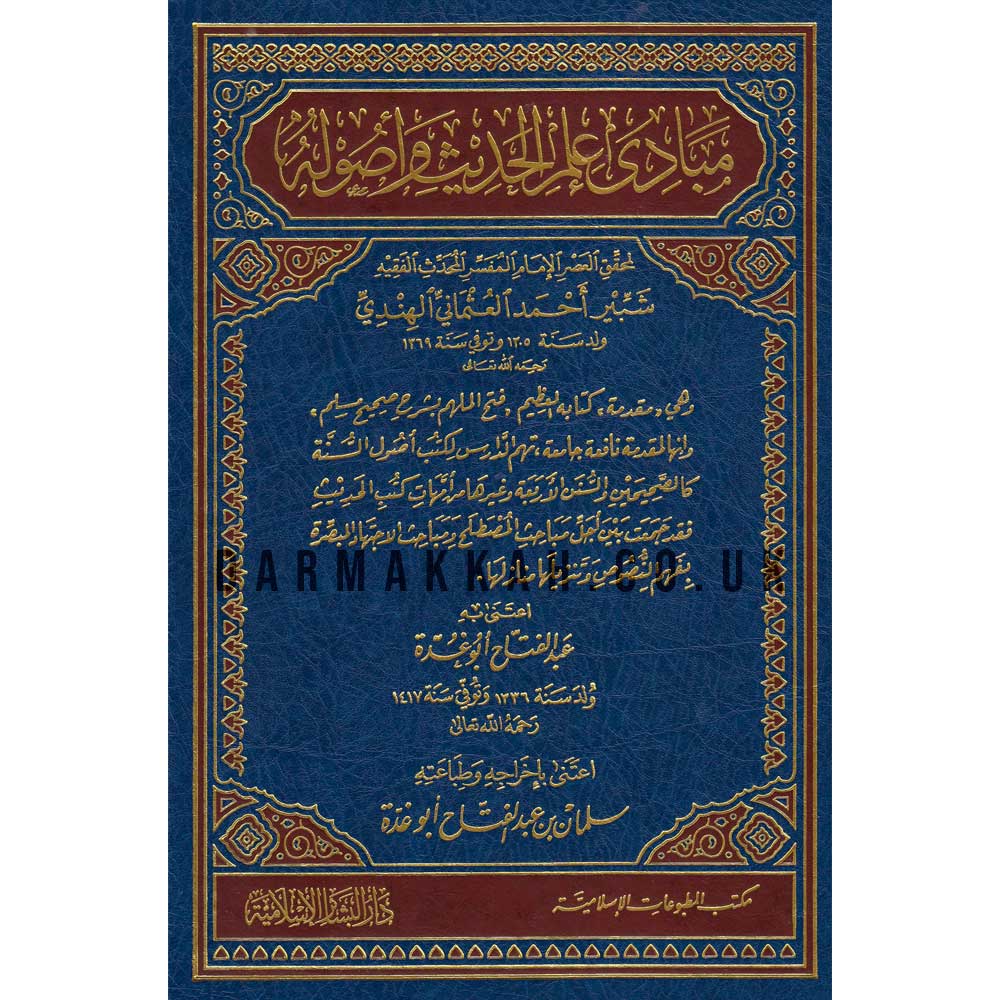 مبادئ علم الحديث وأصوله
لمحقق العصر الإمام المفسر المحدث الفقيه
شَبِّير أَحْمَد العُثْمَانِيِّ الهِنْدِيِّ
ولد سنة ١٣٠٥ وتوفي سنة ١٣٦٩
رحمه الله تعالى
وهي «مقدمة» كتابه العظيم «فتح الملهم بشرح صحيح مسلم»
وإنها لمقدمة نافعة جامعة، تهم الدارس لكتب أصول السنة
كالصحيحين والسنن الأربعة وغيرها من أمهات كتب الحديث
فقد جمعت بين أجل مباحث المصطلح ومباحث الاجتهاد المبصرة
بفهم النصوص وتنزيلها منازلها.
DARMAKKAH.CO.UK
اعتنى به
عبد الفتاح أبو غدة
ولد سنة ١٣٣٦ وتوفي سنة ١٤١٧
رحمه الله تعالى
اعتنى بإخراجه وطباعته
سلمان بن عبد الفتاح أبو غدة
مكتب المطبوعات الإسلامية
دار البشائر الإسلامية